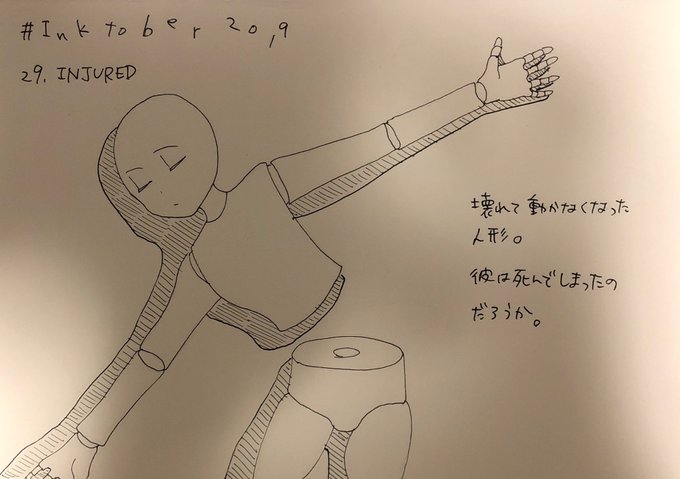 #Inktober 2019
29. INJURED
壊れて動かなくなった
人形。
彼は死んでしまったの
だろうか。